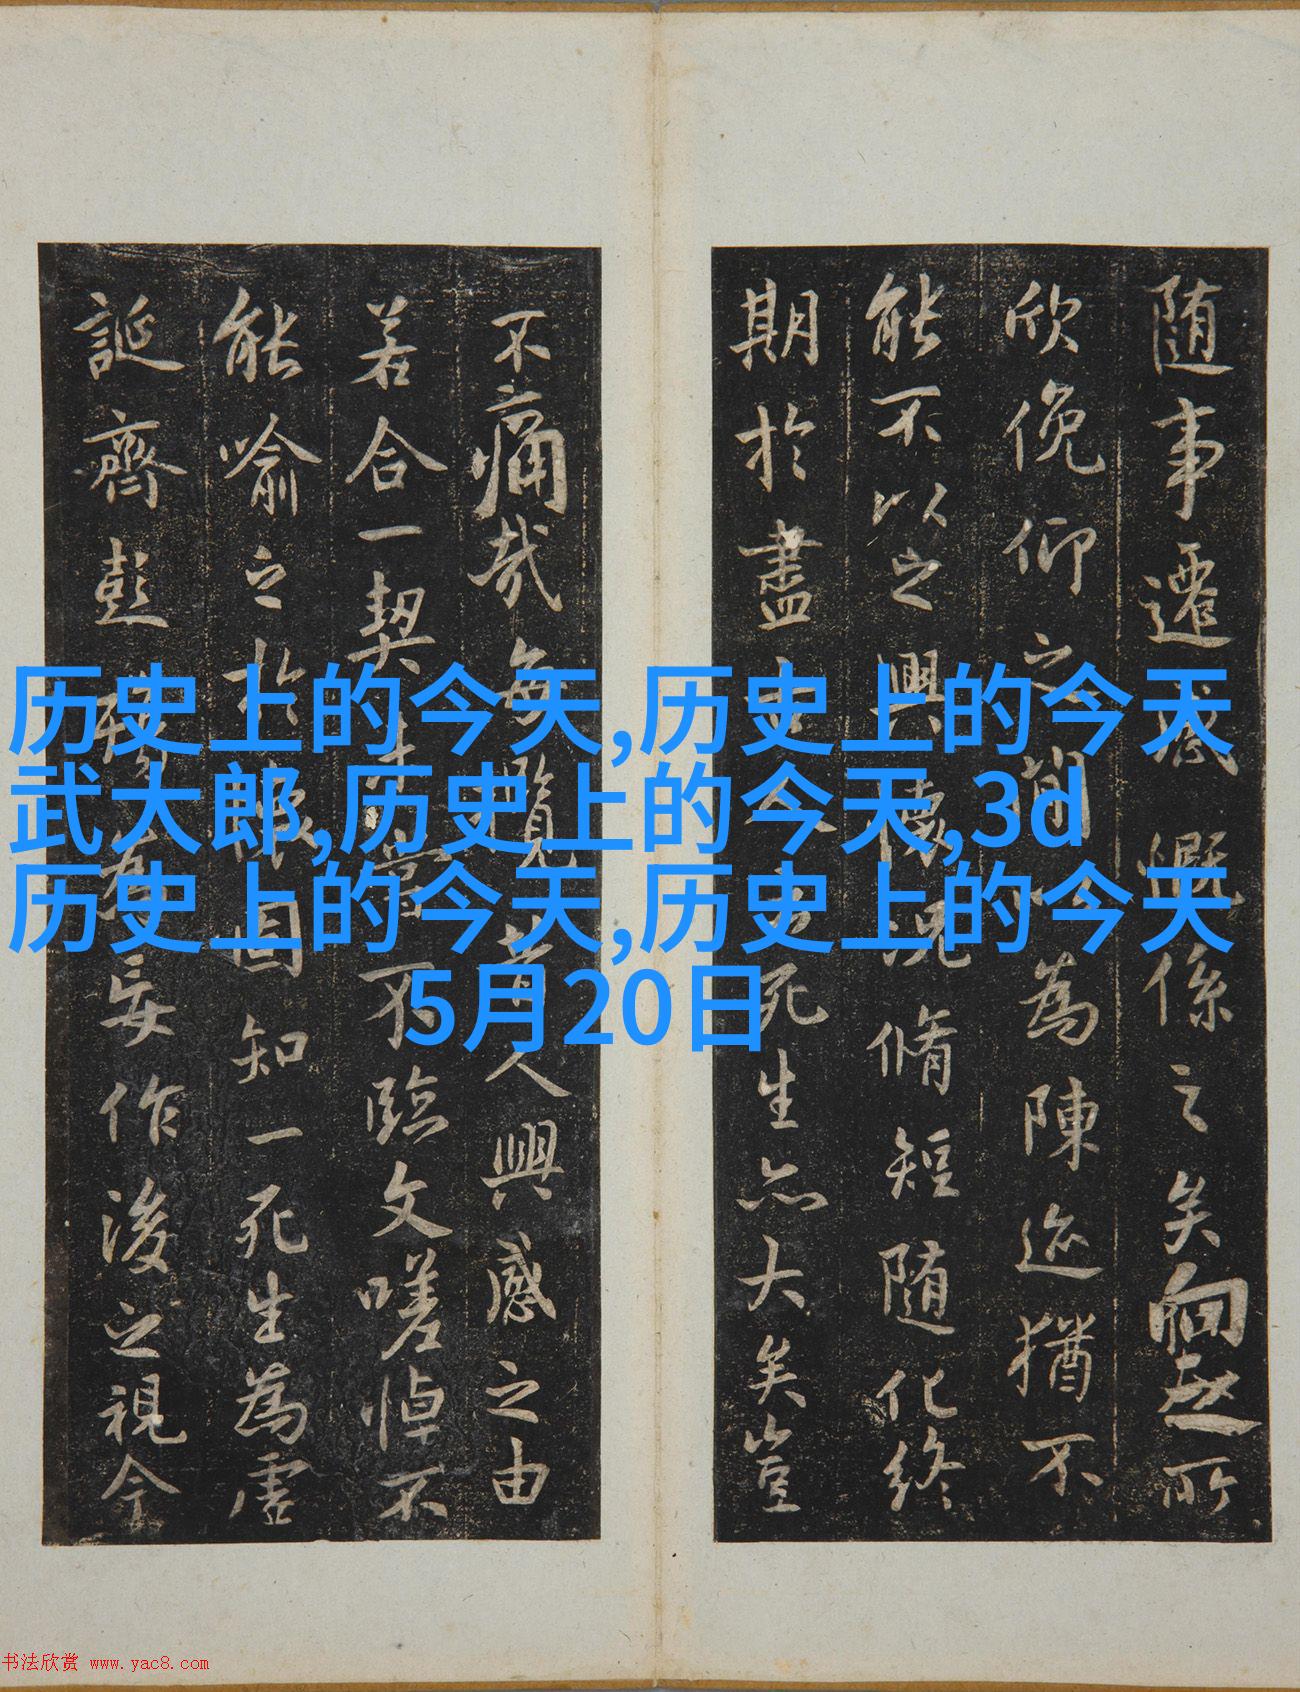 随事遷感慨係之矣向之所
欣俛仰之間以為陳迹猶不
能不以之興懷況脩短随化終
期於盡古人云死生亦大矣豈
不痛哉每攬昔人興感之由
若合一契未嘗不臨文嗟悼不
能喻之於懷固知一死生為虛
誕齊彭殤為妄作後之視今
历史上的今天,历史上的今天
武大郎,历史上的今天,3d
历史上的今天,历史上的今天
5月20日
书法欣赏 www.yac8.com